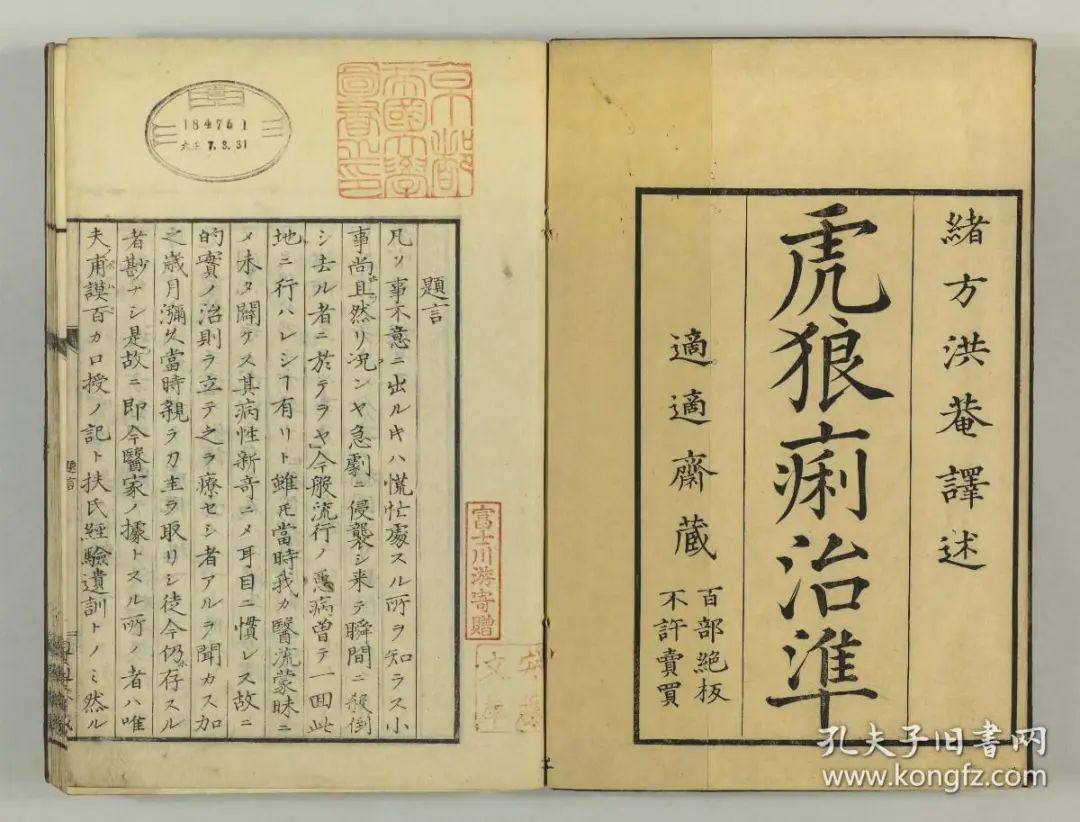 緒方洪菴譯述
虎狼痢治準
適適齋蔵
百部絶板
不許賣買
題言
凡ソ事不意ニ出ル片ハ慌忙處スル所ヲ知ラス小
事尚且然リ况ンヤ急劇ニ侵襲シ来テ瞬間ニ殺倒
シ去ル者ニ於テヲヤ今般流行ノ悪病曽テ一回此
地ニ行ハレシヿ有リト雖𪜈當時我カ醫流蒙昧ニ
メ未タ闢ケス其病性新奇ニメ耳目ニ慣レス故ニ
的實ノ治則ヲ立テ之ヲ療セシ者アルヲ聞カス加
之歳月瀰久當時親ラ刀圭ヲ取リシ徒今仍存スル
者尠ナシ是故ニ即今醫家ノ據トスル所ノ者ハ唯
夫甫謨百カロ授ノ記ト扶氏經驗遺訓トノミ然ル
題言
京都
帝國大學
圖書之印
184751
大正 7.3.31
富士川游寄贈
孔夫子旧书网
www.kongfz.com